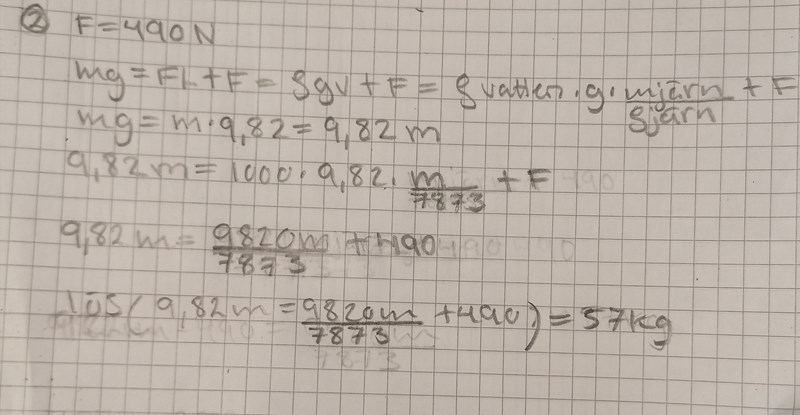 ② F=490N
mg=FL+F=ρgv+F=ρvatten·g·mjärn/ρjärn+F
mg=m·9,82=9,82m
9,82m=1000·9,82·m/7873+F
9,82m=9820m/7873+490
lös(9,82m=9820m/7873+490)=57kg